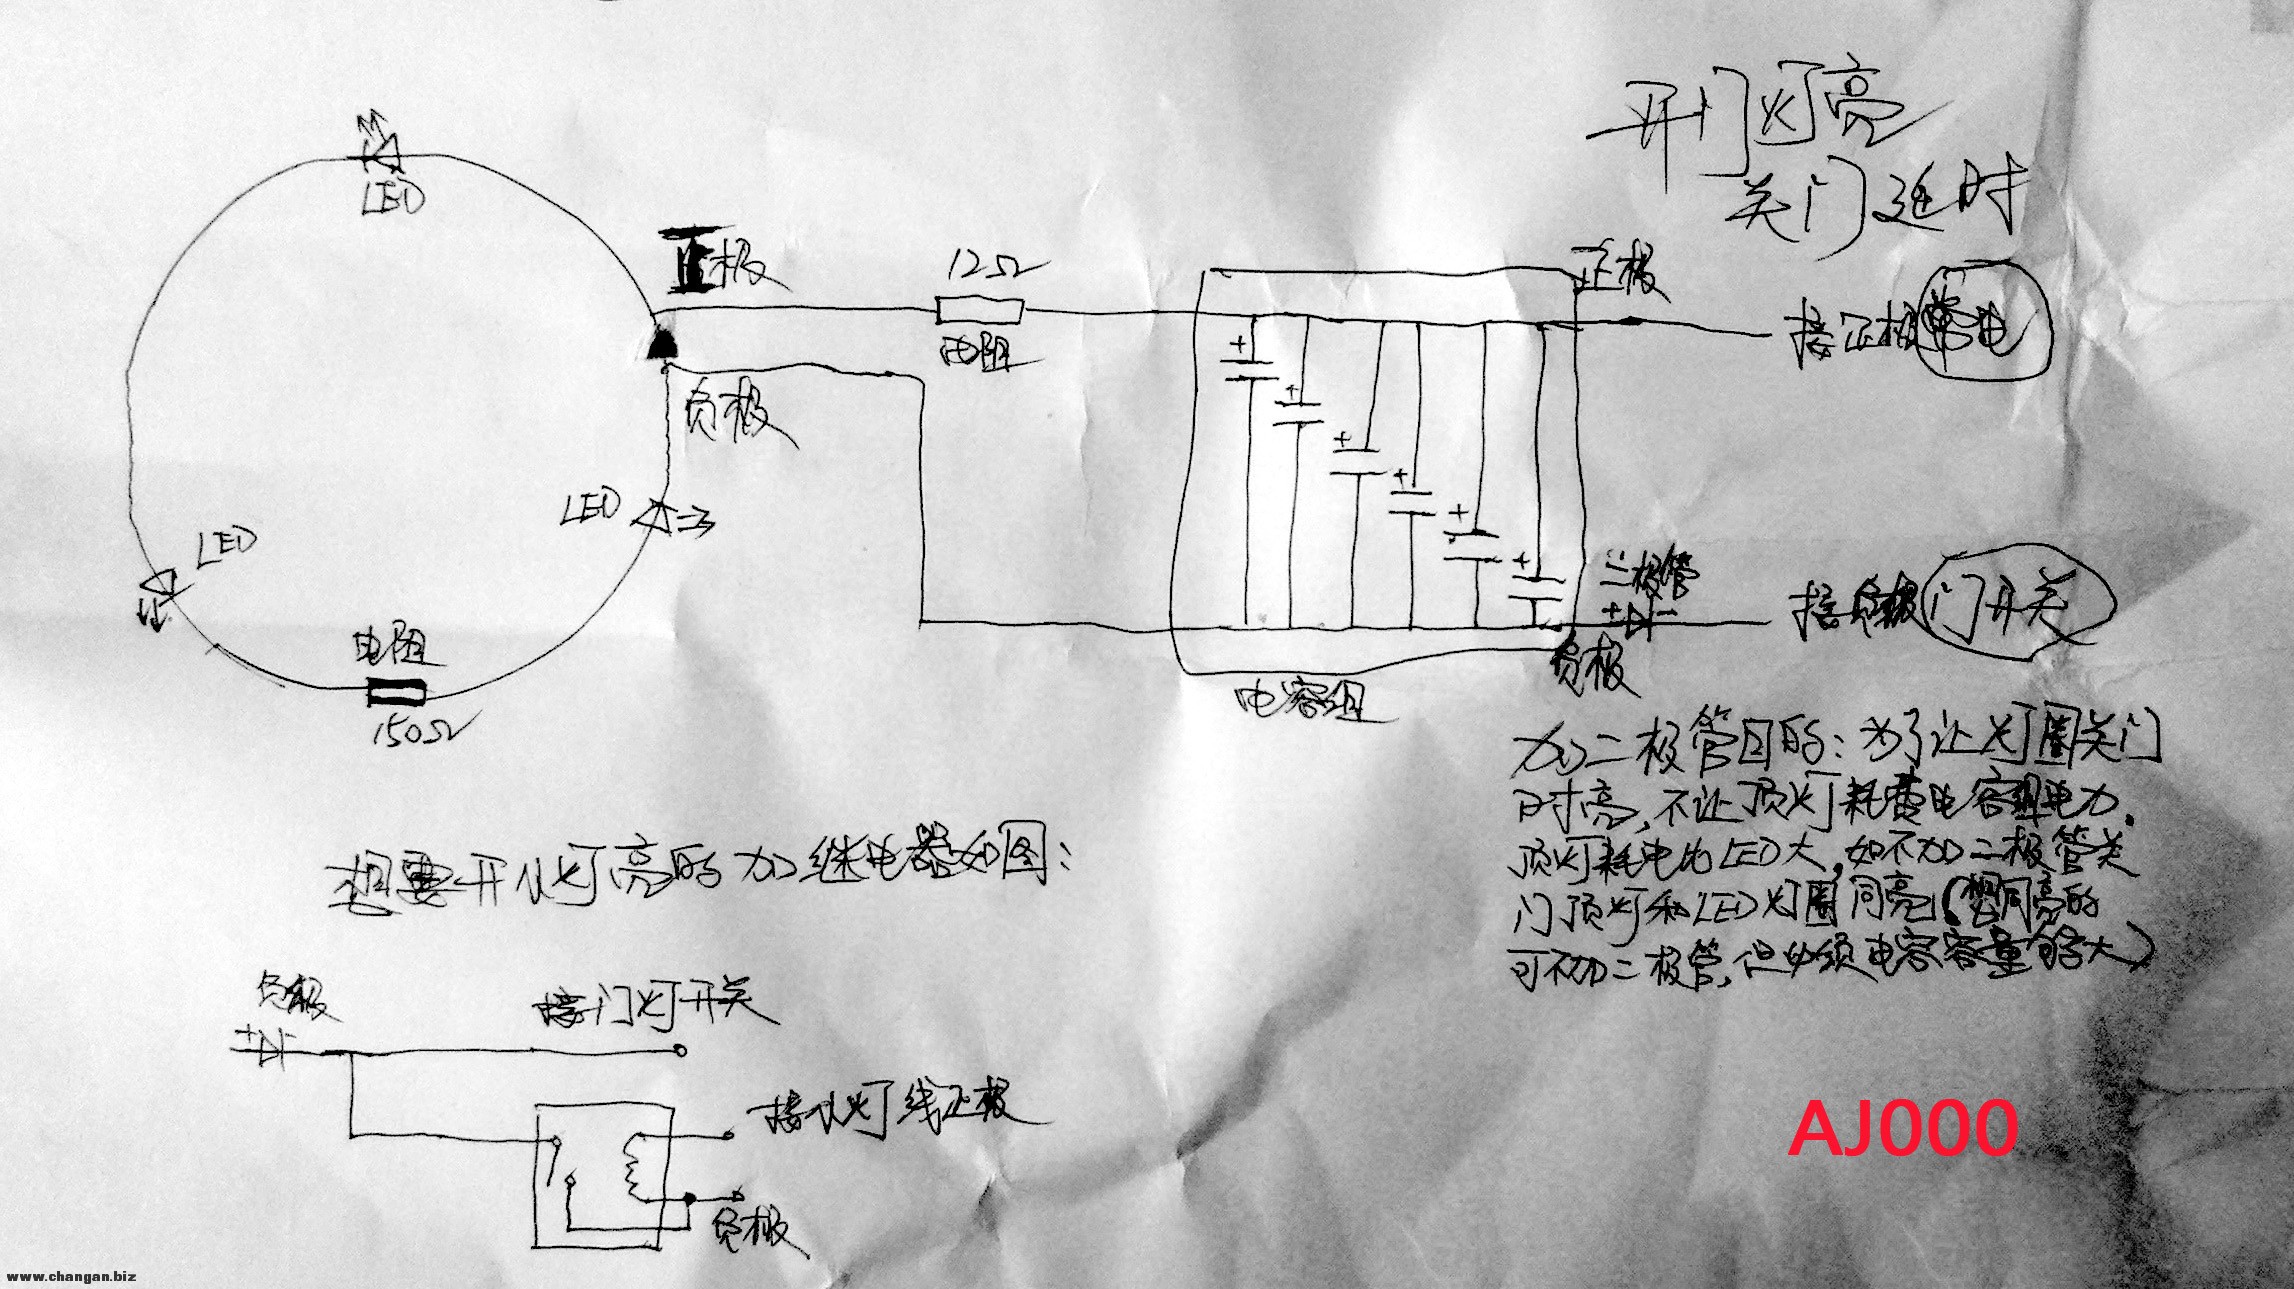 开门灯亮
关门延时
LED
正极
12Ω
电阻
正极
接正极常电
负极
LED
LED
电阻
150Ω
+
+
+
+
+
+
二极管
+ -
接负极门开关
负极
电容组
加二极管目的：为了让灯圈关门
时亮，不让顶灯耗费电容组电力。
顶灯耗电比LED大，如不加二极管关
门顶灯和LED灯圈同亮（想同亮的
可不加二极管，但必须电容容量够大）
想要开小灯亮的加继电器如图：
负极
+ -
接门灯开关
接小灯线正极
负极
AJ000
www.changan.biz